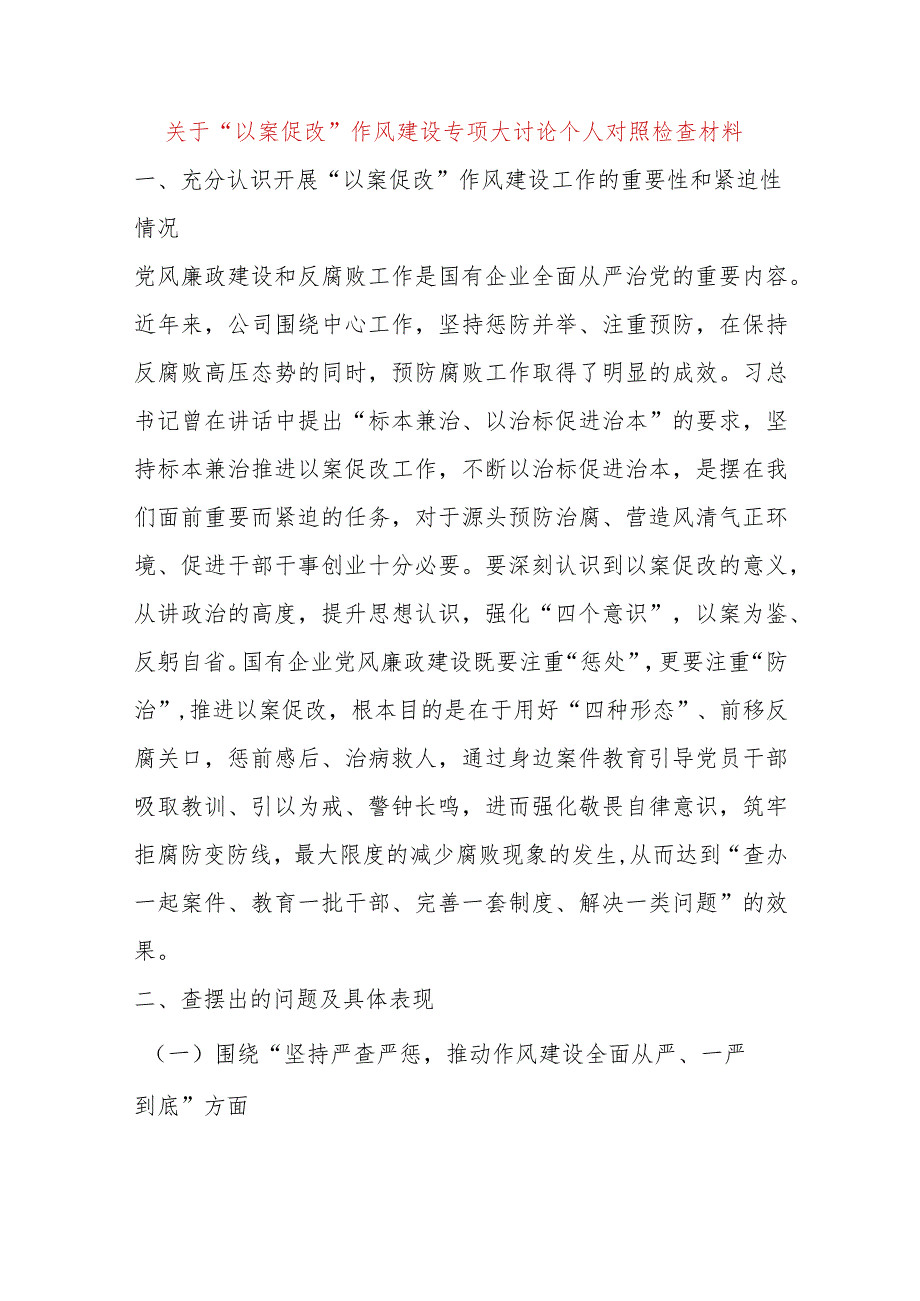 关于“以案促改”作风建设专项大讨论个人对照检查材料
一、充分认识开展“以案促改”作风建设工作的重要性和紧迫性
情况
党风廉政建设和反腐败工作是国有企业全面从严治党的重要内容。
近年来，公司围绕中心工作，坚持惩防并举、注重预防，在保持
反腐败高压态势的同时，预防腐败工作取得了明显的成效。习总
书记曾在讲话中提出“标本兼治、以治标促进治本”的要求，坚
持标本兼治推进以案促改工作，不断以治标促进治本，是摆在我
们面前重要而紧迫的任务，对于源头预防治腐、营造风清气正环
境、促进干部干事创业十分必要。要深刻认识到以案促改的意义，
从讲政治的高度，提升思想认识，强化“四个意识”，以案为鉴、
反躬自省。国有企业党风廉政建设既要注重“惩处”，更要注重“防
治”,推进以案促改，根本目的是在于用好“四种形态”、前移反
腐关口，惩前感后、治病救人，通过身边案件教育引导党员干部
吸取教训、引以为戒、警钟长鸣，进而强化敬畏自律意识，筑牢
拒腐防变防线，最大限度的减少腐败现象的发生,从而达到“查办
一起案件、教育一批干部、完善一套制度、解决一类问题”的效
果。
二、查摆出的问题及具体表现
（一）围绕“坚持严查严惩，推动作风建设全面从严、一严
到底”方面